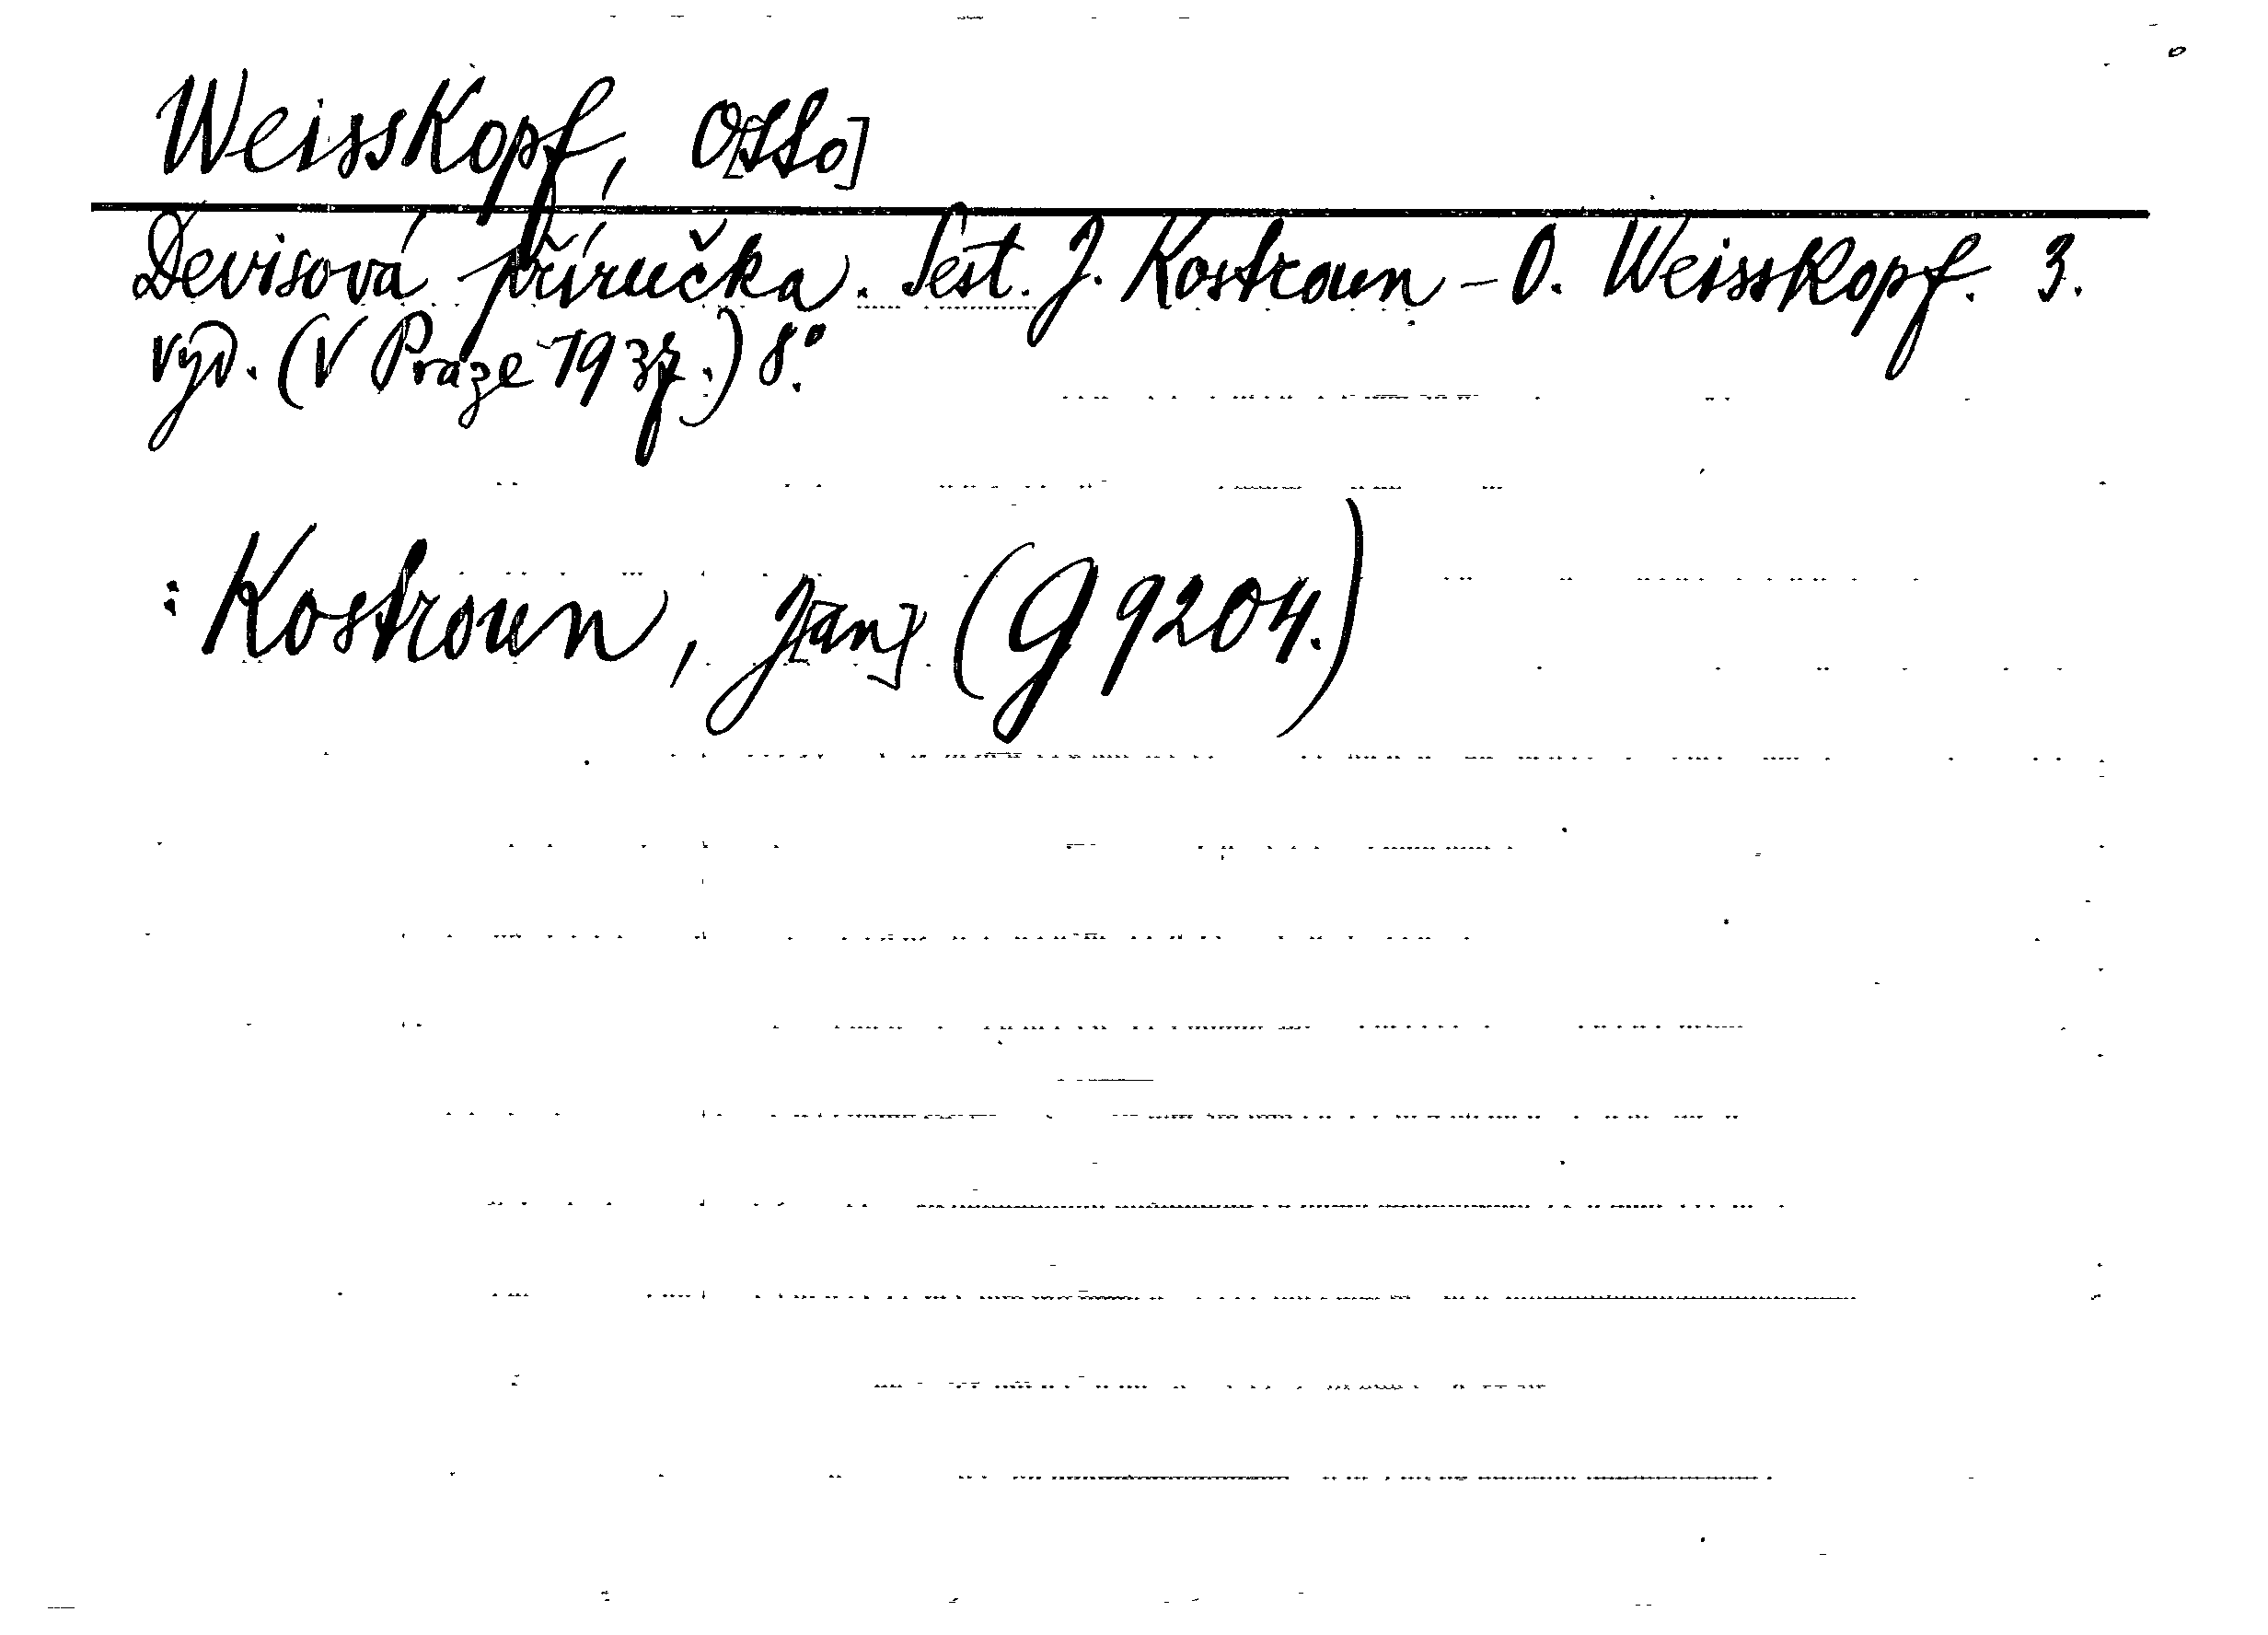 Weisskopf, O[tto]
Devisová příručka. Sest. J. Kostroun - O. Weisskopf. 3.
vyd. (V Praze 1937.) 8°.
: Kostroun, J[an] (G 9204.)